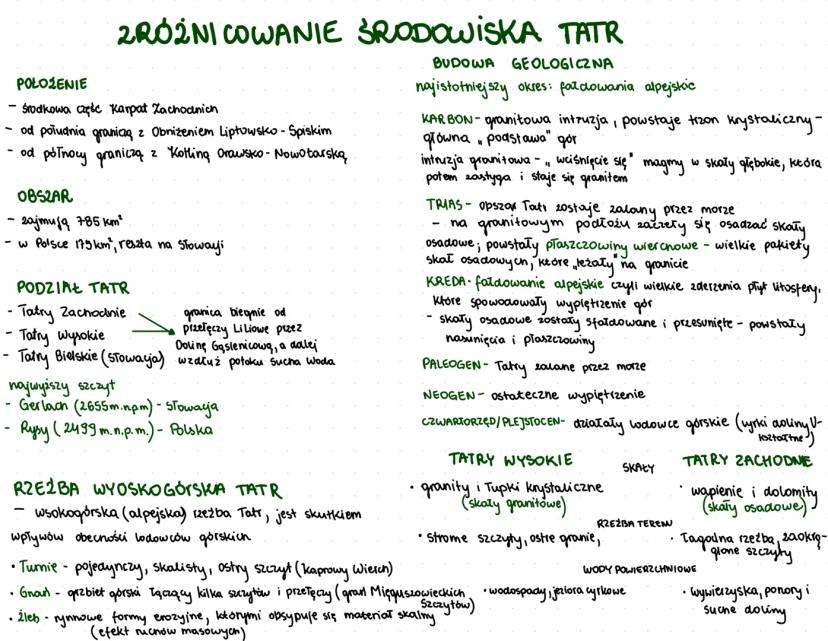 ZRÓŻNICOWANIE ŚRODOWISKA TATR
POŁOŻENIE
- środkowa część Karpat Zachodnich
- od południa graniczą z Obniżeniem Liptowsko-Spiskim
- od północy graniczą z Kotliną Orawsko-Nowotarską
OBSZAR
- zajmują 785 km²
- w Polsce 175km², reszta na Słowacji
PODZIAŁ TATR
- Tatry Zachodnie
- Tatry Wysokie
- Tatry Bielskie (Słowacja)
granica biegnie od
przełęczy Liliowe przez
Dolinę Gąsienicową, a dalej
wzdłuż potoku Sucha Woda
najwyższy szczyt
- Gerlach (2655m.n.p.m) - Słowacja
- Rysy (2499 m.n.p.m.) - Polska
RZEŹBA WYOSKOGÓRSKA TATR
- wsokogórska (alpejska) rzeźba Tatr, jest skutkiem
wpływów obecności lodowców górskich
• Turnie - pojedynczy, skalisty, ostry szczyt (Kaprowy Wierch)
• Grań - grzbiet górski łączący kilka szczytów i przełęczy (grań Mięguszowieckich
Szczytów)
• Żleb - rynnowe formy erozyjne, którymi obsypuje się materiał skalny
(efekt ruchów masowych)
BUDOWA GEOLOGICZNA
najistotniejszy okres: fałdowania alpejskie
KARBON - granitowa intruzja, powstaje trzon krystaliczny -
główna "podstawa" gór
intruzja granitowa - "wciśnięcie się" magmy w skały głębokie, która
potem zastyga i staje się granitem
TRIAS - obszar Tatr zostaje zalany przez morze
- na granitowym podłożu zaczęły się osadzać skały
osadowe; powstały płaszczowiny wierchowe - wielkie pakiety
skał osadowych, które "leżały" na granicie
KREDA - fałdowanie alpejskie czyli wielkie zderzenia płyt litosfery,
które spowodowały wypiętrzenie gór
- skały osadowe zostały sfałdowane i przesunięte - powstały
nasunięcia i płaszczowiny
PALEOGEN - Tatry zalane przez morze
NEOGEN - ostateczne wypiętrzenie
CZWARTORZĘD/PLEJSTOCEN - działały lodowce górskie (wyrki doliny U-
kształtne)
TATRY WYSOKIE
SKAŁY
TATRY ZACHODNIE
• granity i łupki krystaliczne
(skały granitowe)
• wapienie i dolomity
(skały osadowe)
RZEŹBA TERENU
• strome szczyty, ostre granie,
• łagodna rzeźba, zaokrą-
glone szczyty
WODY POWIERZCHNIOWE
• wodospady, jeziora cyrkowe
• wywierzyska, ponory i
suche doliny